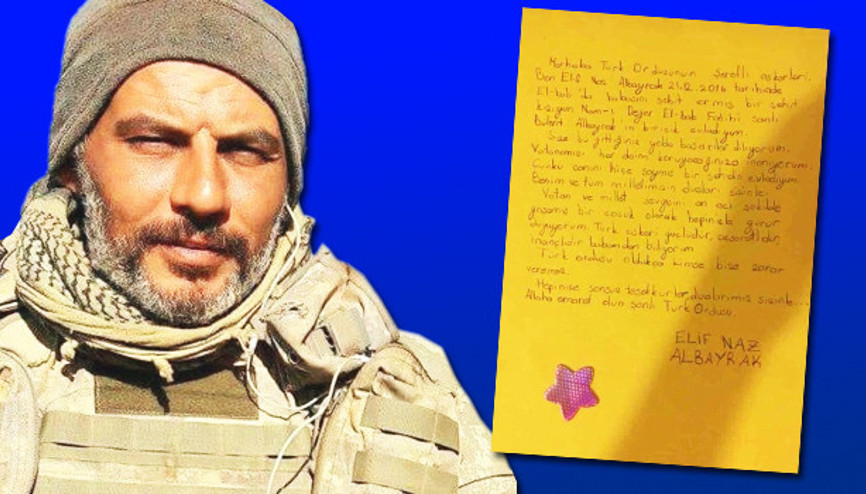 Merhaba Türk Ordusunun şerefli askerleri.
Ben Elif Naz Albayrak 21.12.2016 tarihinde
El-bab'da babasını şehit vermiş bir şehit
kızıyım Nam-ı Değer El-bab Fatihi şanlı
Bülent Albayrak'ın biricik evladıyım.
Size bu gittiğiniz yolda başarılar diliyorum.
Vatanımızı her daim koruyacağınıza inanıyorum.
Çünkü canını hiçe saymış bir şehidin evladıyım.
Benim ve tüm milletimizin duaları sizinle.
Vatan ve millet sevgisini en acı şekilde
yaşamış bir çocuk olarak hepinizle gurur
duyuyorum. Türk askeri güçlüdür, cesaretlidir,
inançlıdır babamdan biliyorum.
Türk ordusu oldukça kimse bize zarar
veremez.
Hepinize sonsuz teşekkürler, dualarımız sizinle...
Allaha emanet olun şanlı Türk Ordusu.
ELİF NAZ
ALBAYRAK